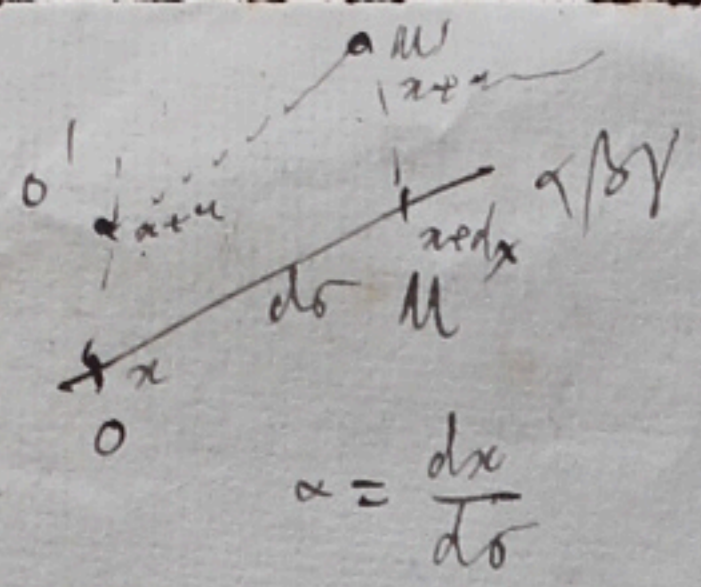 M'
x+
O'
x+u
αβγ
x+dx
dσ M
x
O
α = dx/dσ